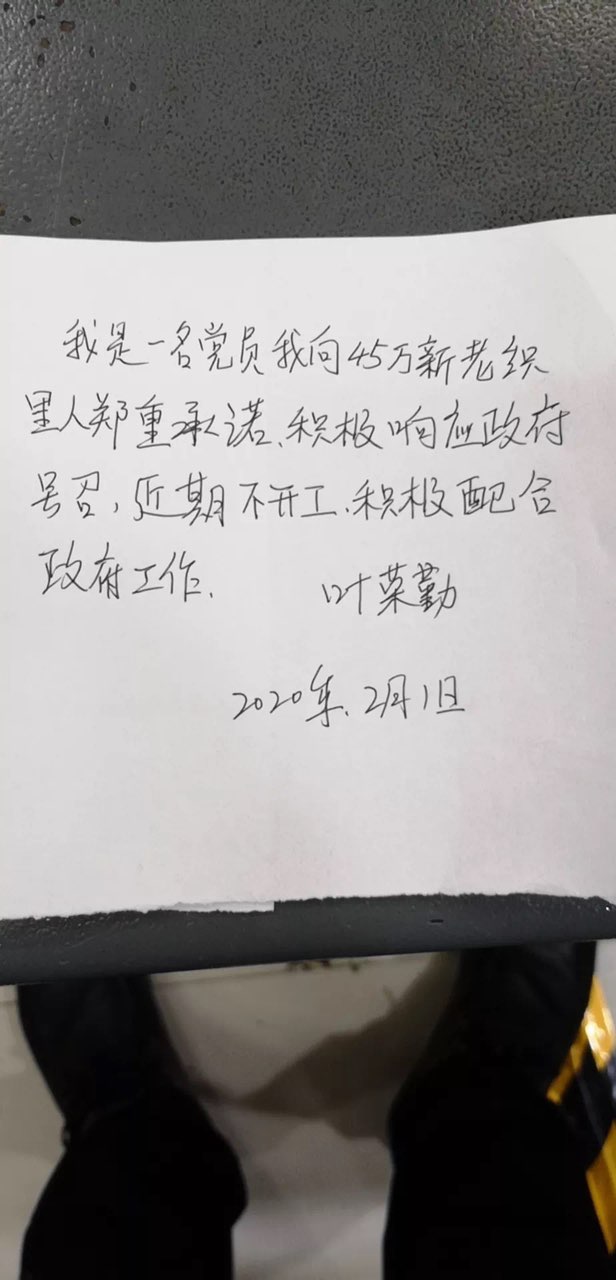 我是一名党员我向45万新老织
里人郑重承诺、积极响应政府
号召,近期不开工、积极配合
政府工作.
叶荣勤
2020年.2月1日